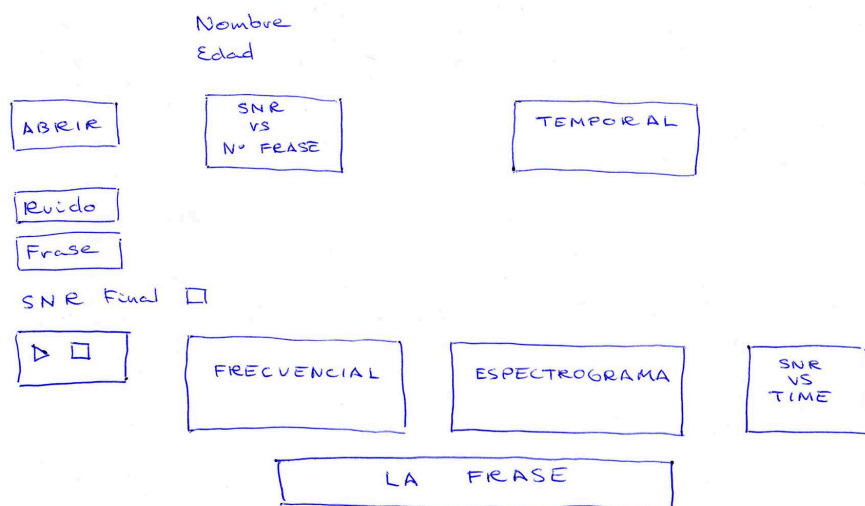 Nombre
Edad
ABRIR
SNR
VS
Nº FRASE
TEMPORAL
Ruido
Frase
SNR Final
FRECUENCIAL
ESPECTROGRAMA
SNR
VS
TIME
LA FRASE